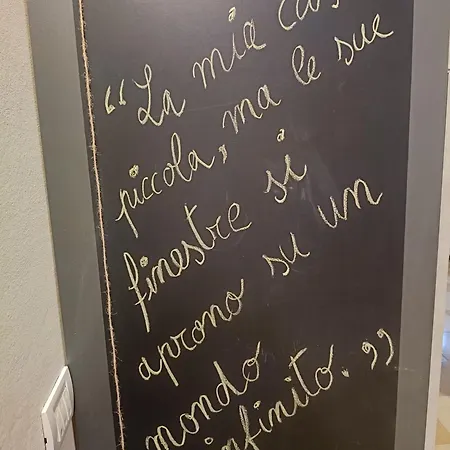 “La mia cas
piccola, ma le sue
finestre si
aprono su un
mondo
infinito.”